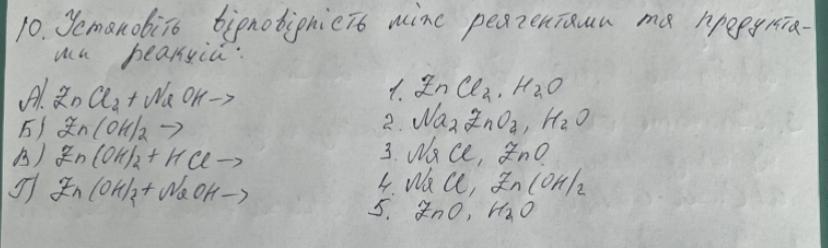 10. Установіть відповідність між реагентами та продукта-
ми реакцій:
А). ZnCl2 + NaOH ->
Б) Zn(OH)2 ->
В) Zn(OH)2 + HCl ->
Г) Zn(OH)2 + NaOH ->
1. ZnCl2. H2O
2. Na2ZnO2, H2O
3. NaCl, ZnO
4. NaCl, Zn(OH)2
5. ZnO, H2O